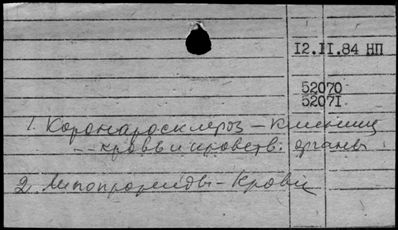 12.II.84 НП
52070
52071.
1. Коронаросклероз - клиника
-- кровь и кроветв. органы
2. Липопротеиды - кровь